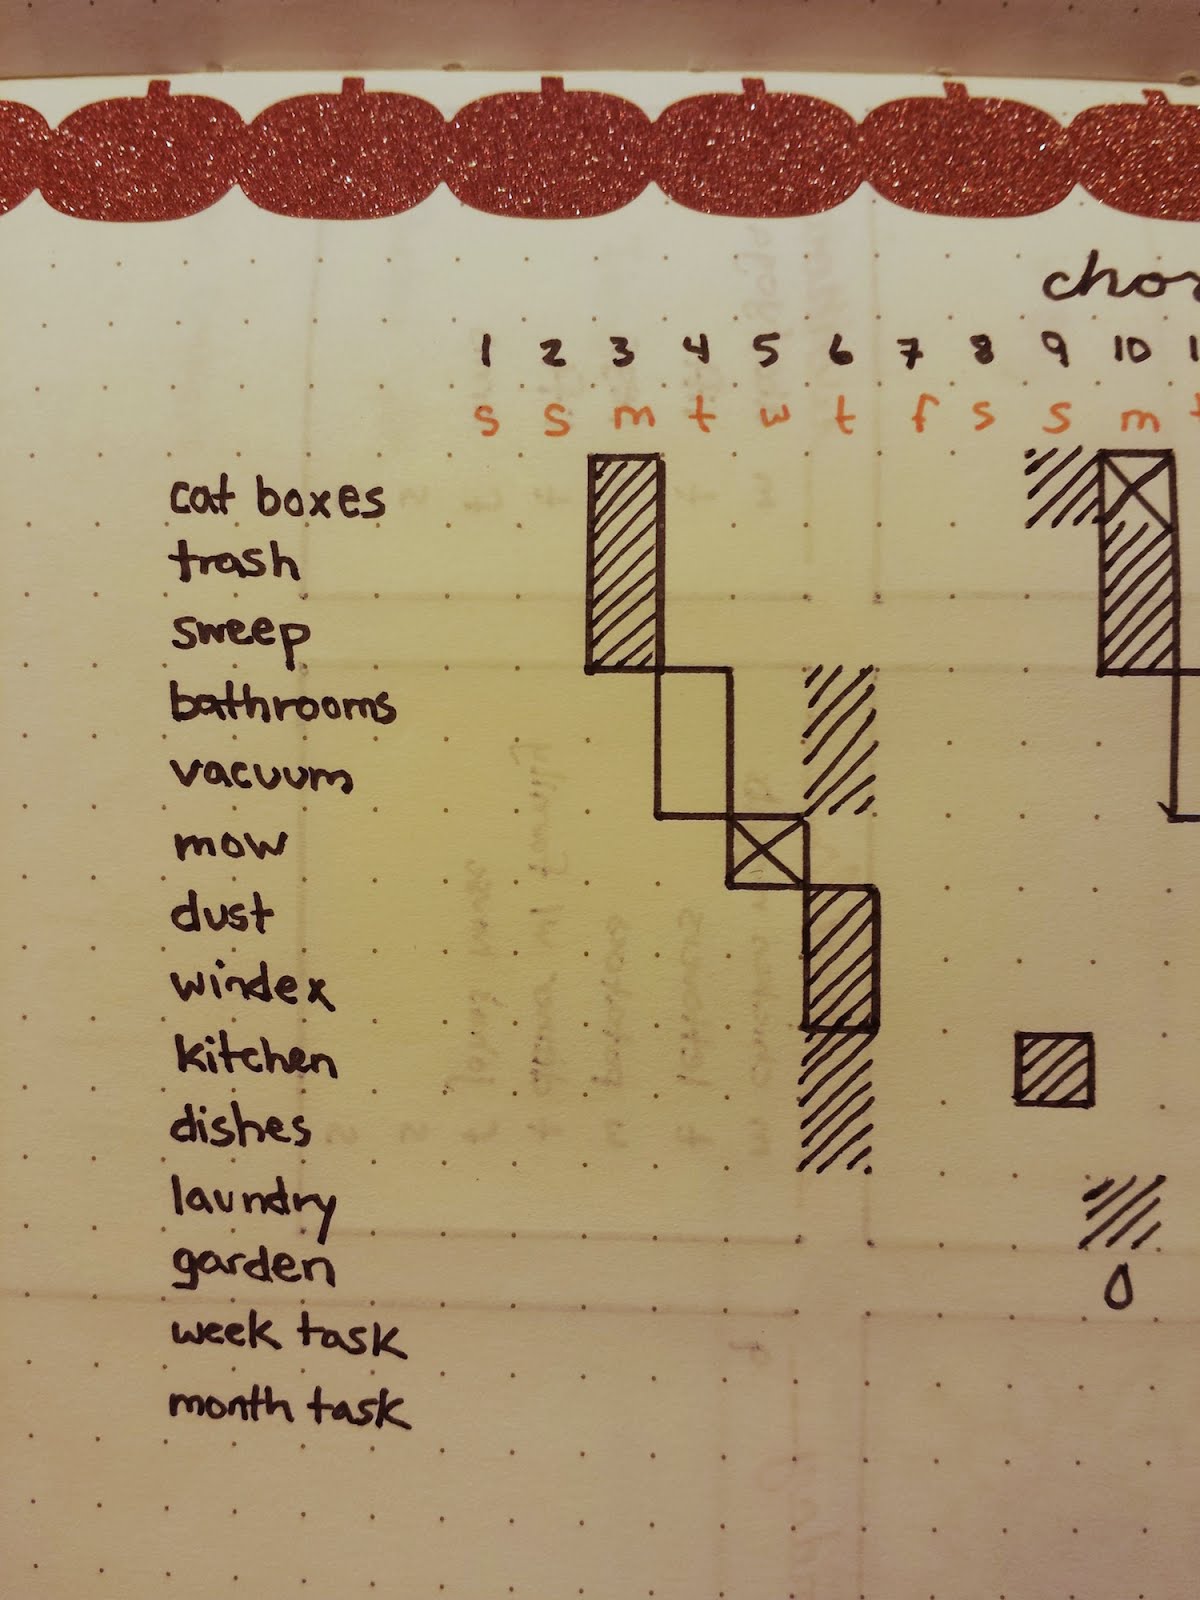 1 2 3 4 5 6 7 8 9 10
s s m t w t f s s m t
cat boxes
trash
sweep
bathrooms
vacuum
mow
dust
windex
kitchen
dishes
laundry
garden
week task
month task